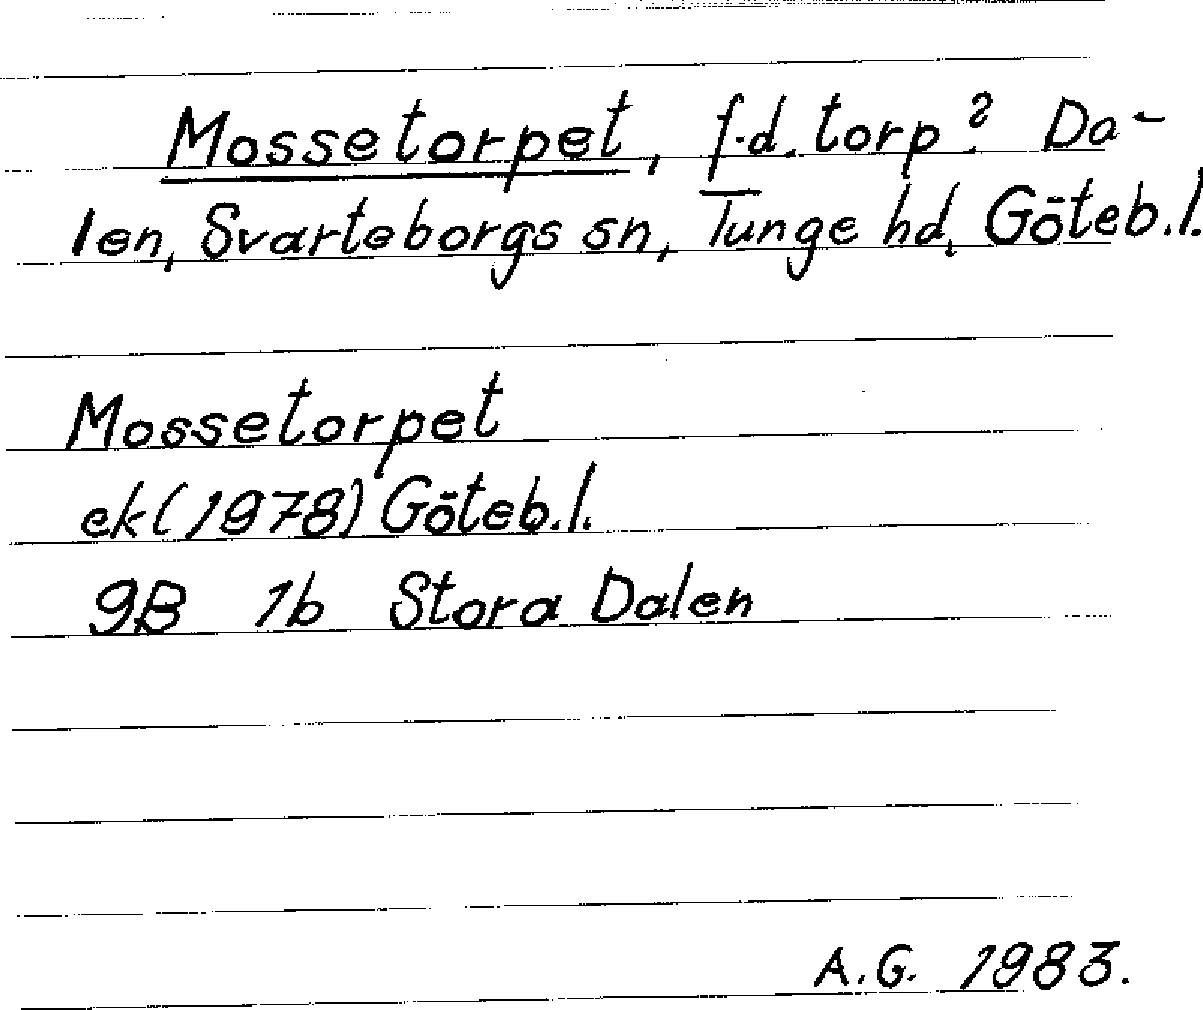 Mossetorpet, f.d. torp? Da-
len, Svarteborgs sn, Tunge hd, Göteb.l.
Mossetorpet
ek (1978) Göteb.l.
9B 1b Stora Dalen
A.G. 1983.